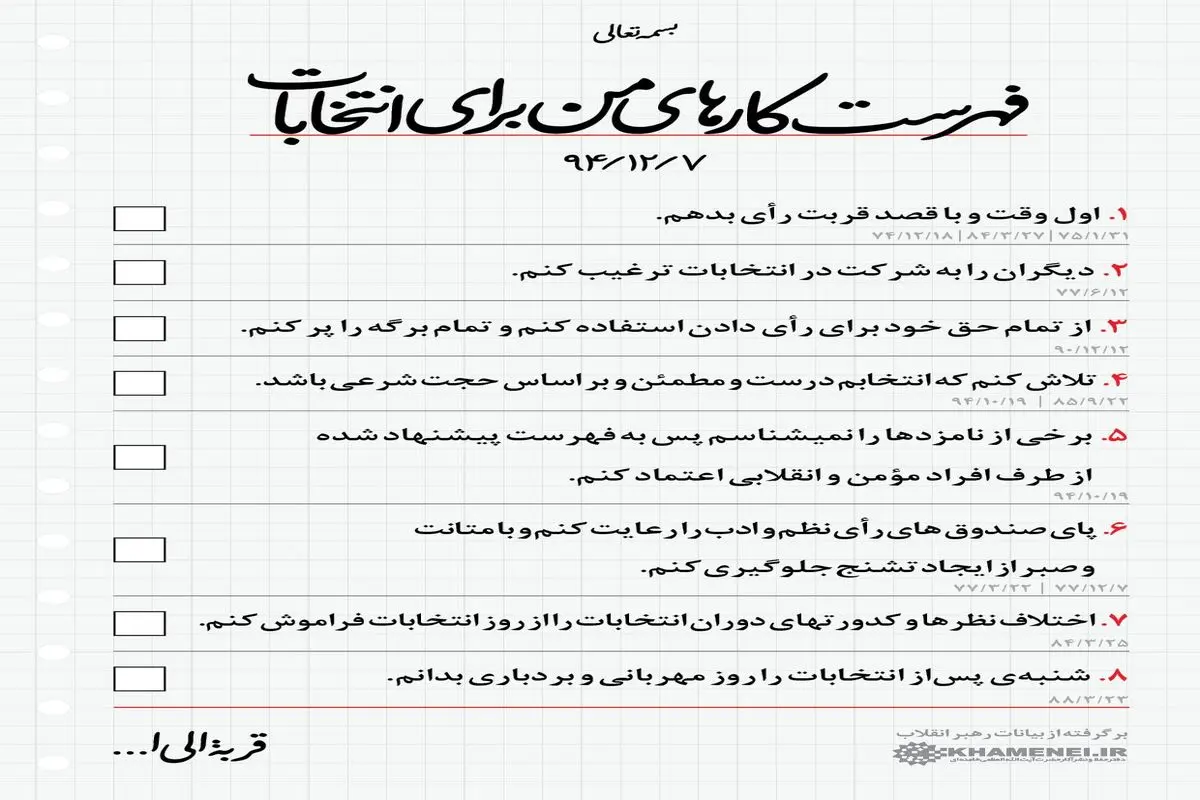 بسمه‌تعالی
فهرست کارهای من برای انتخابات
۹۴/۱۲/۷
۱. اول وقت و با قصد قربت رأی بدهم.
۷۴/۱۲/۱۸ | ۸۴/۳/۲۷ | ۷۵/۱/۳۱
۲. دیگران را به شرکت در انتخابات ترغیب کنم.
۷۷/۶/۱۲
۳. از تمام حق خود برای رأی دادن استفاده کنم و تمام برگه را پر کنم.
۹۰/۱۲/۱۲
۴. تلاش کنم که انتخابم درست و مطمئن و بر اساس حجت شرعی باشد.
۹۴/۱۰/۱۹ | ۸۵/۹/۲۲
۵. برخی از نامزدها را نمیشناسم پس به فهرست پیشنهاد شده
از طرف افراد مؤمن و انقلابی اعتماد کنم.
۹۴/۱۰/۱۹
۶. پای صندوق های رأی نظم و ادب را رعایت کنم و با متانت
و صبر از ایجاد تشنج جلوگیری کنم.
۷۷/۳/۲۲ | ۷۷/۱۲/۷
۷. اختلاف نظرها و کدورتهای دوران انتخابات را از روز انتخابات فراموش کنم.
۸۴/۳/۲۵
۸. شنبه‌ی پس از انتخابات را روز مهربانی و بردباری بدانم.
۸۸/۳/۲۳
برگرفته از بیانات رهبر انقلاب
KHAMENEI.IR
دفتر حفظ و نشر آثار حضرت آیت‌الله‌العظمی خامنه‌ای
قربة الی ا...